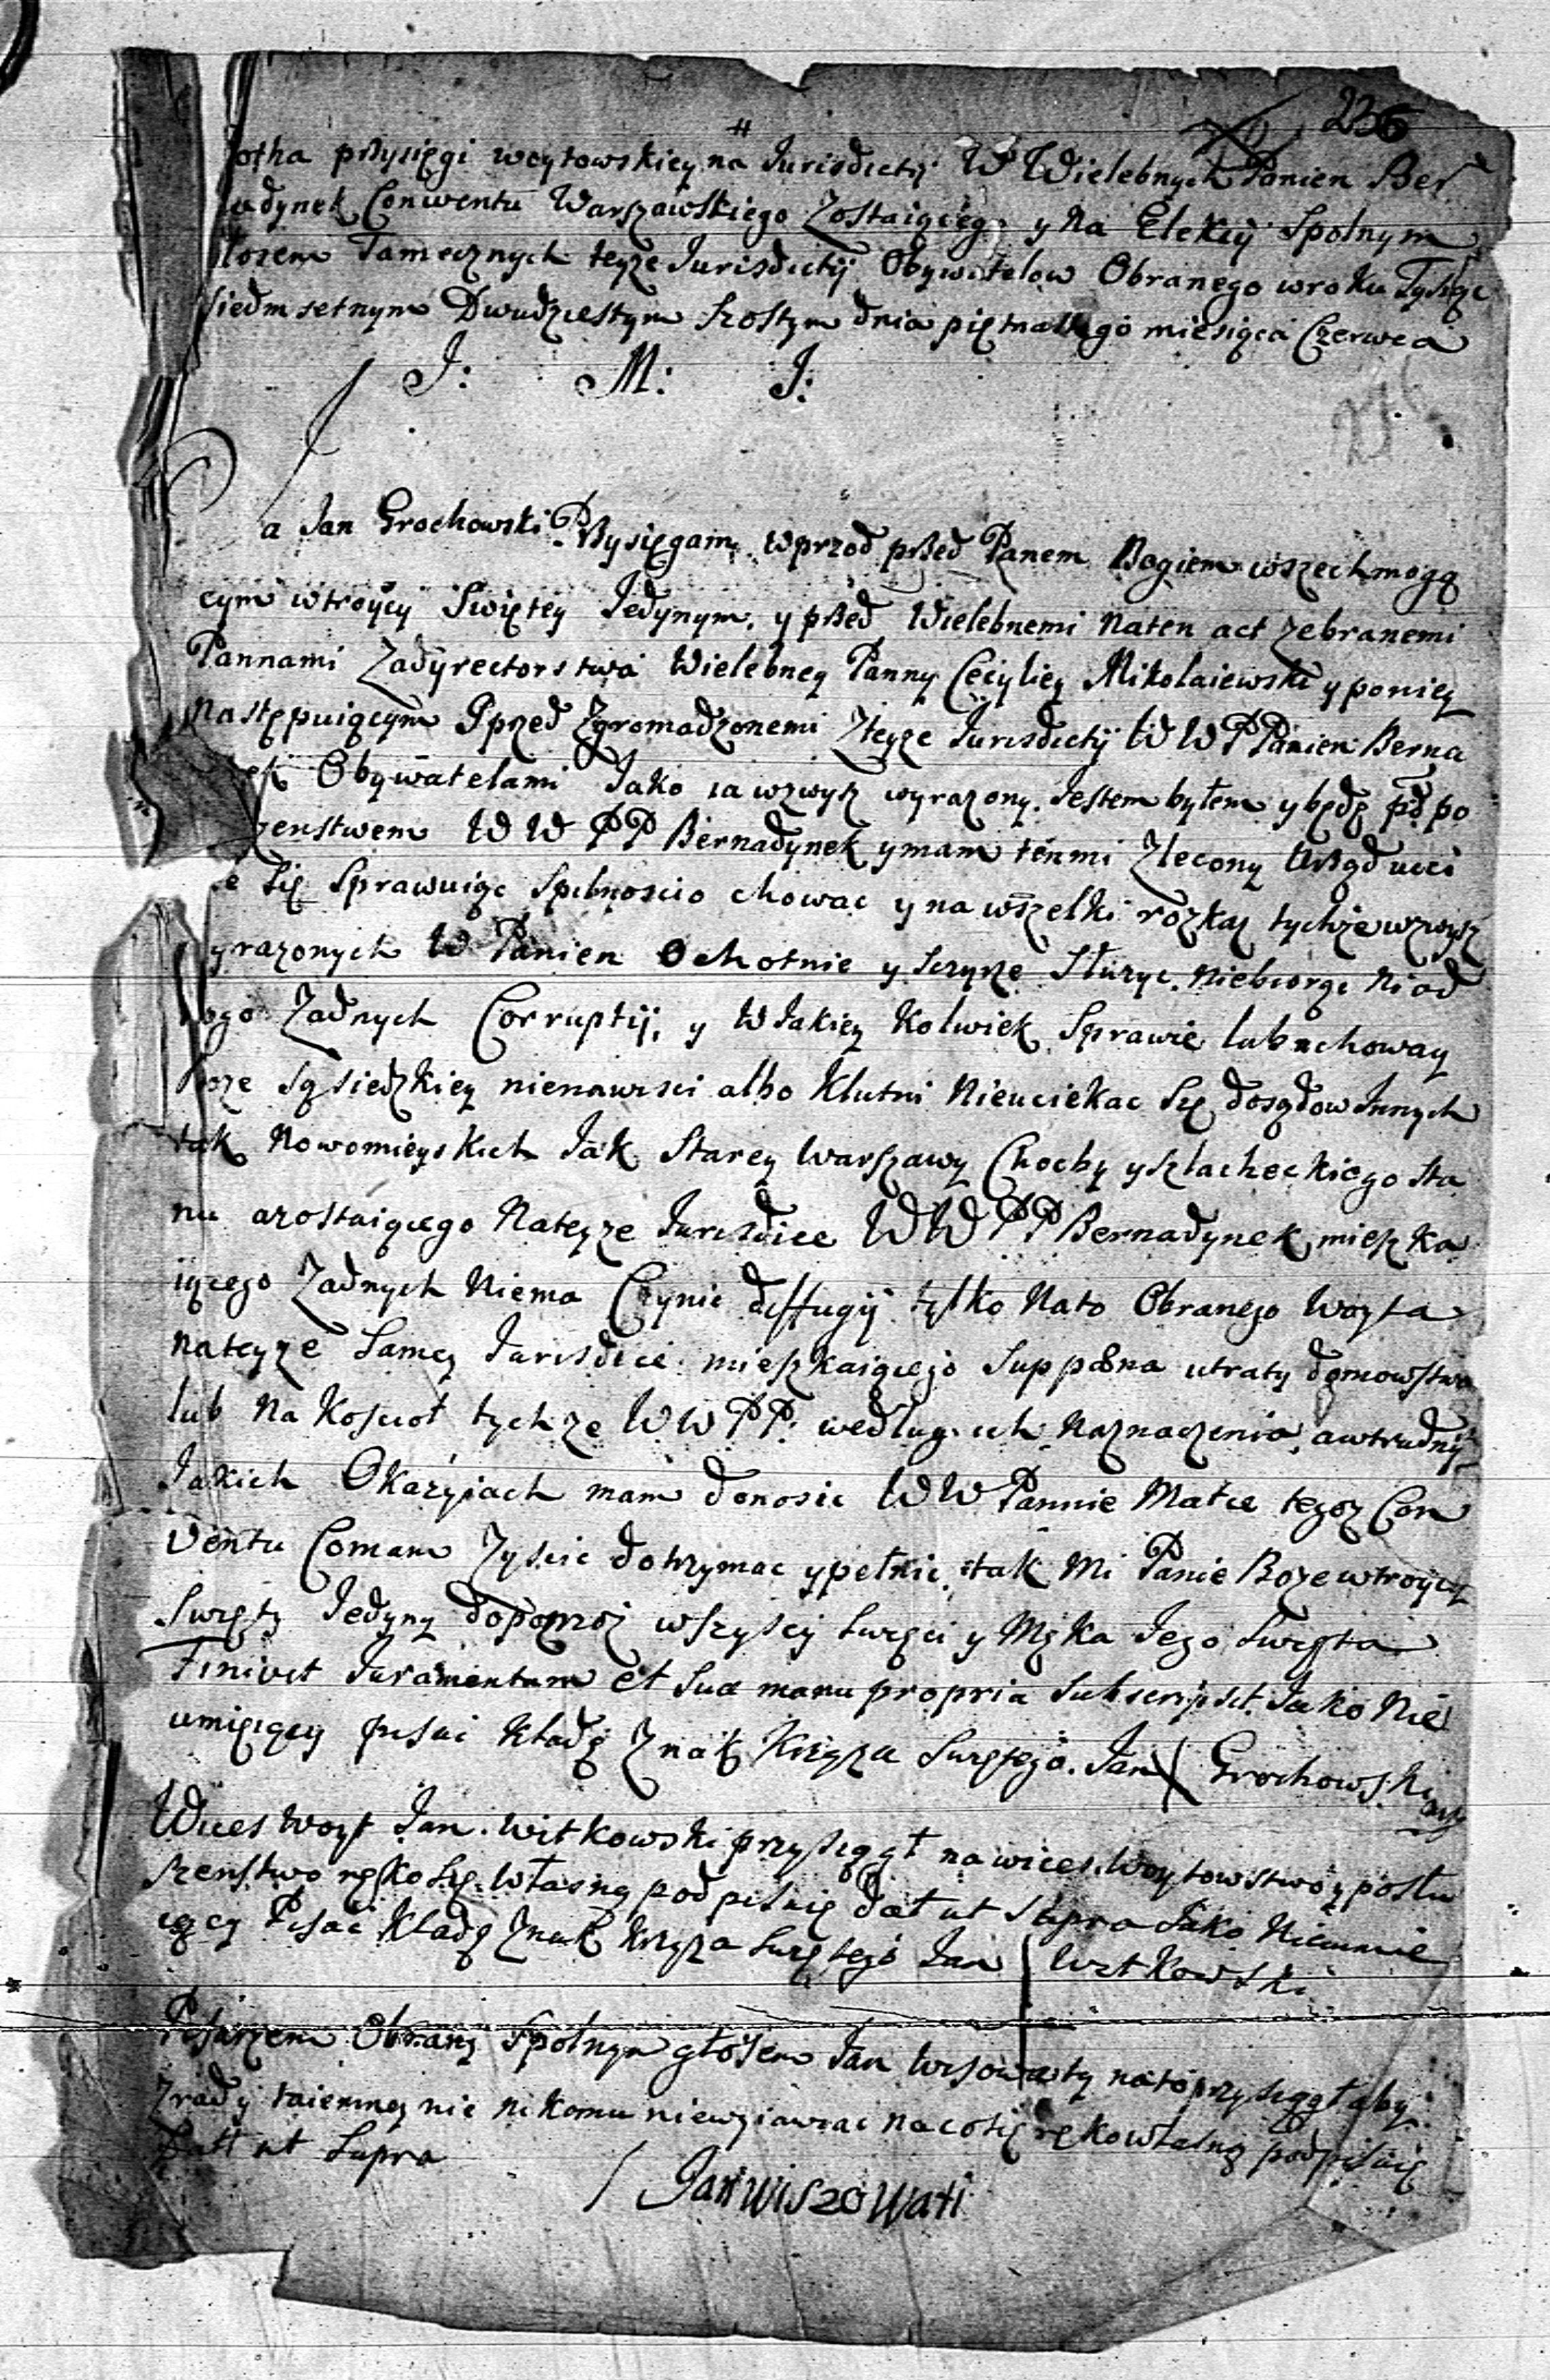 236
Rotha przysięgi woytowskiey na Jurisdictij W Wielebnych Panien Ber
nadynek Conwentu Warszawskiego Zostaiącego y na Elekcij Spolnym
głosem Tamecznych teyze Jurisdictij Obywatelow Obranego wroku Tysiąc
siedm setnym Dwudziestym szostym dnia piętnastego miesiąca Czerwca
J: M: J:
Ja Jan Grochowski Przysięgam wprzod przed Panem Bogiem wszechmogą
cym wtroycy Swiętey Jedynym, y przed Wielebnemi naten act zebranemi
Pannami Zadyrectorstwa Wielebney Panny Cecyliey Mikolaiewski y poniey
następuiącym Y przed Zgromadzonemi Zteyze Jurisdictij W W P Panien Berna
Obywatelami Jako ia wzwysz wyrazony. Jestem byłem y będę pod po
szenstwem W W P P Bernadynek y mam ten mi Zlecony Urząd ucci
wie Się Sprawuiąc Spilnoscio chowac y na wszelki rozkaz tychze wzwysz
wyrazonych W Panien Ochotnie y sczyrze Słuzyc. niebiorąc ni od
kogo Zadnych Corruptij, y W Jakiey kolwiek Sprawie lub uchoway
Boze sąsiedzkiey nienawisci albo Klutni Nieuciekac Się dosądow Innych
tak Nowomieyskich Jak Starey Warszawy Choćby y szlacheckiego sta
nu azostaiącego Nateyze Jurisdice W W P P Bernadynek mieszka
iącego Zadnych Niema Czynic deffugij tylko Nato Obranego Woyta
nateyze Samey Jurisdice mieszkaiącego Sup pœna utraty domowstwa
lub na Koscioł tychze W W P P: według ich naznaczenia, awtrudnij
Jakich Okazyiach mam donosic W W Pannie Matce tegoz Con
ventu Co mam Zyscic dotrzymac y pełnic, tak Mi Panie Boze wtroycy
Swięty Jedyny dopomoz wszyscy Swięci y Męka Jego Swięta
Finivit Juramentum et Sua manu propria subscripsit. Jako Nie
umieiący pisac kładę Znak Krzyza Swiętego. Jan X Grochowski
Wices Woyt Jan Witkowski przysiągł na wices Woytowstwo y posłu
szenstwo ręko Się własną podpisuię Dat ut Supra Jako Nieumie
iący Pisac Kładę Znak Krzyza Swiętego Jan Witkowski
Pisarzem Obrany Spolnym głosem Jan Wisowaty nato przysiągł aby
Zrady taiemney nic nikomu niewyiawiac na co się ręko własną podpisuię
Datt ut Supra
Jan Wiszowati